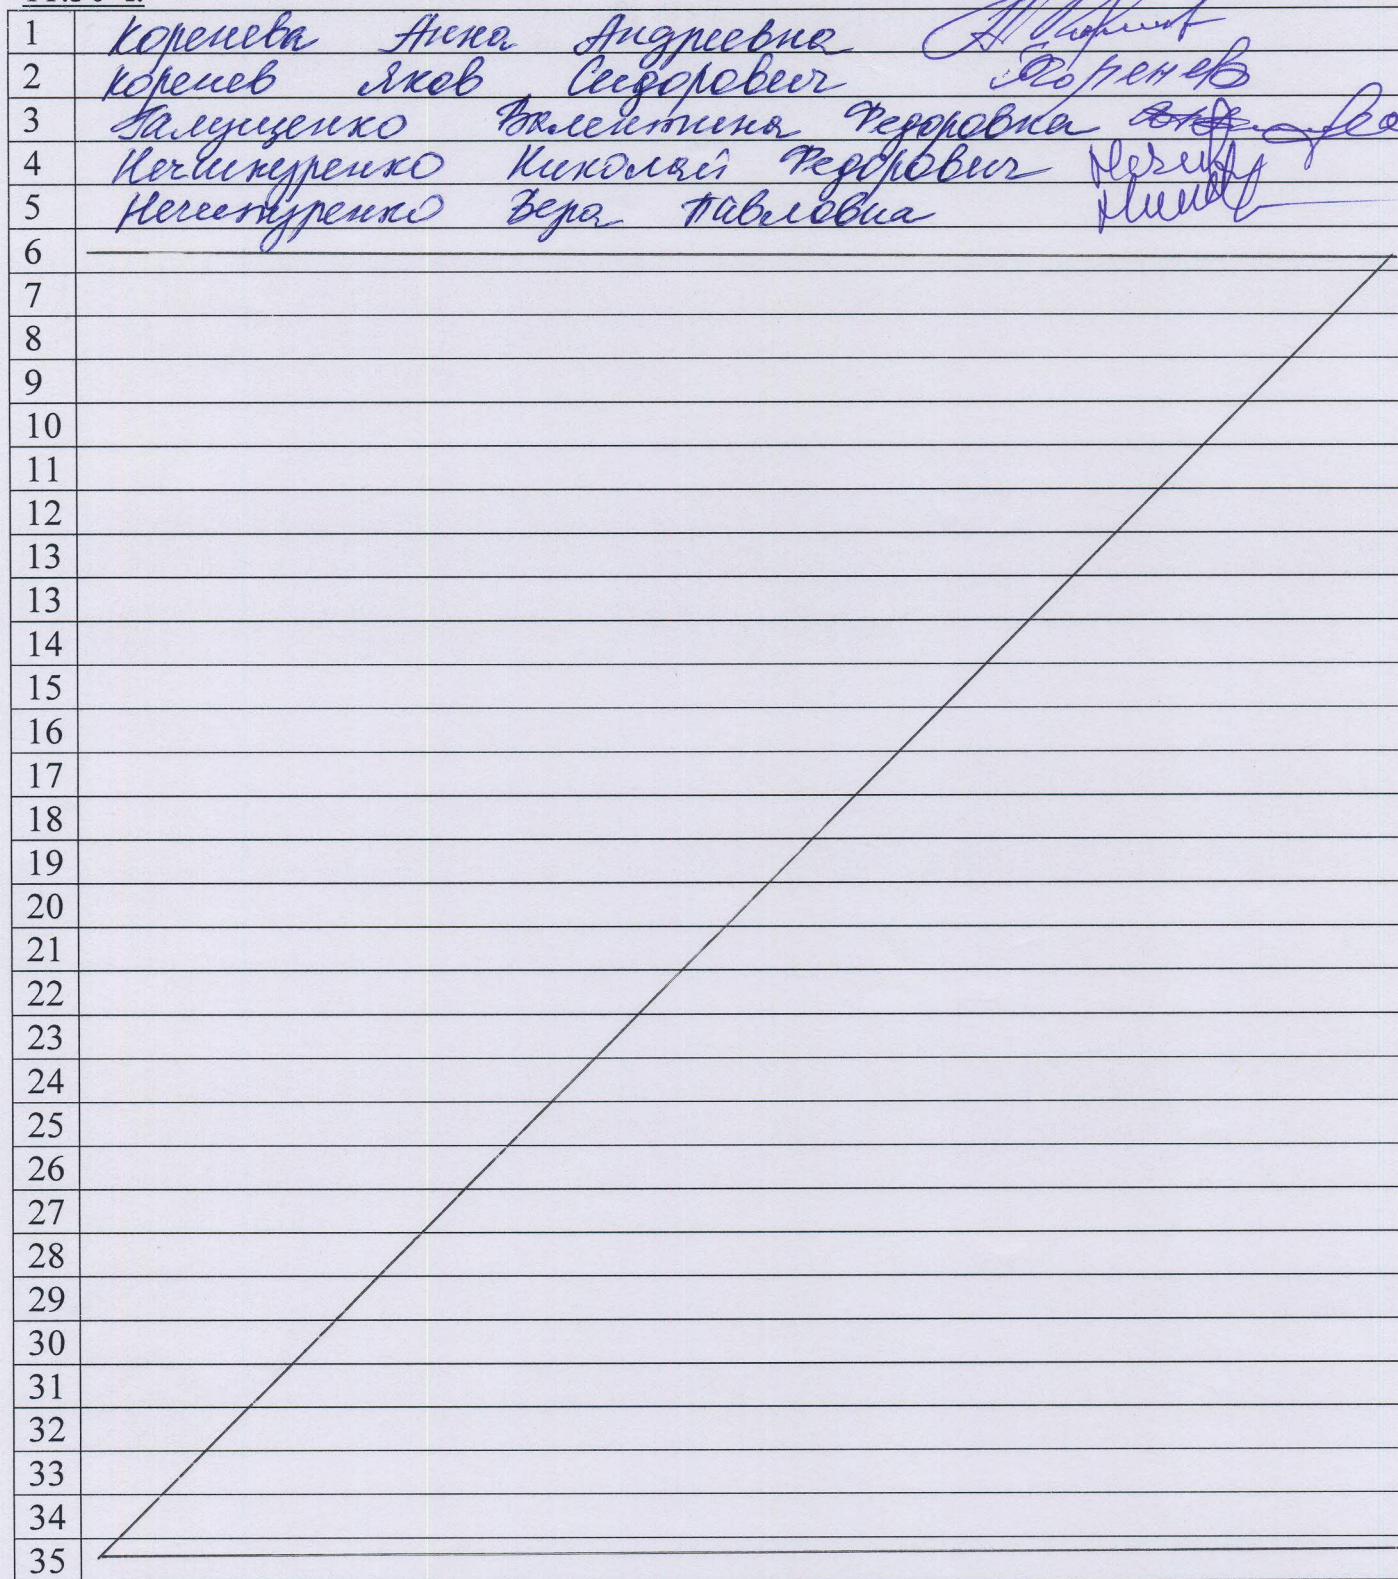 1 Коренева Анна Андреевна
2 Коренев Яков Сидорович Коренев
3 Галущенко Валентина Федоровна
4 Нечипуренко Николай Федорович
5 Нечипуренко Вера Павловна
6
7
8
9
10
11
12
13
13
14
15
16
17
18
19
20
21
22
23
24
25
26
27
28
29
30
31
32
33
34
35